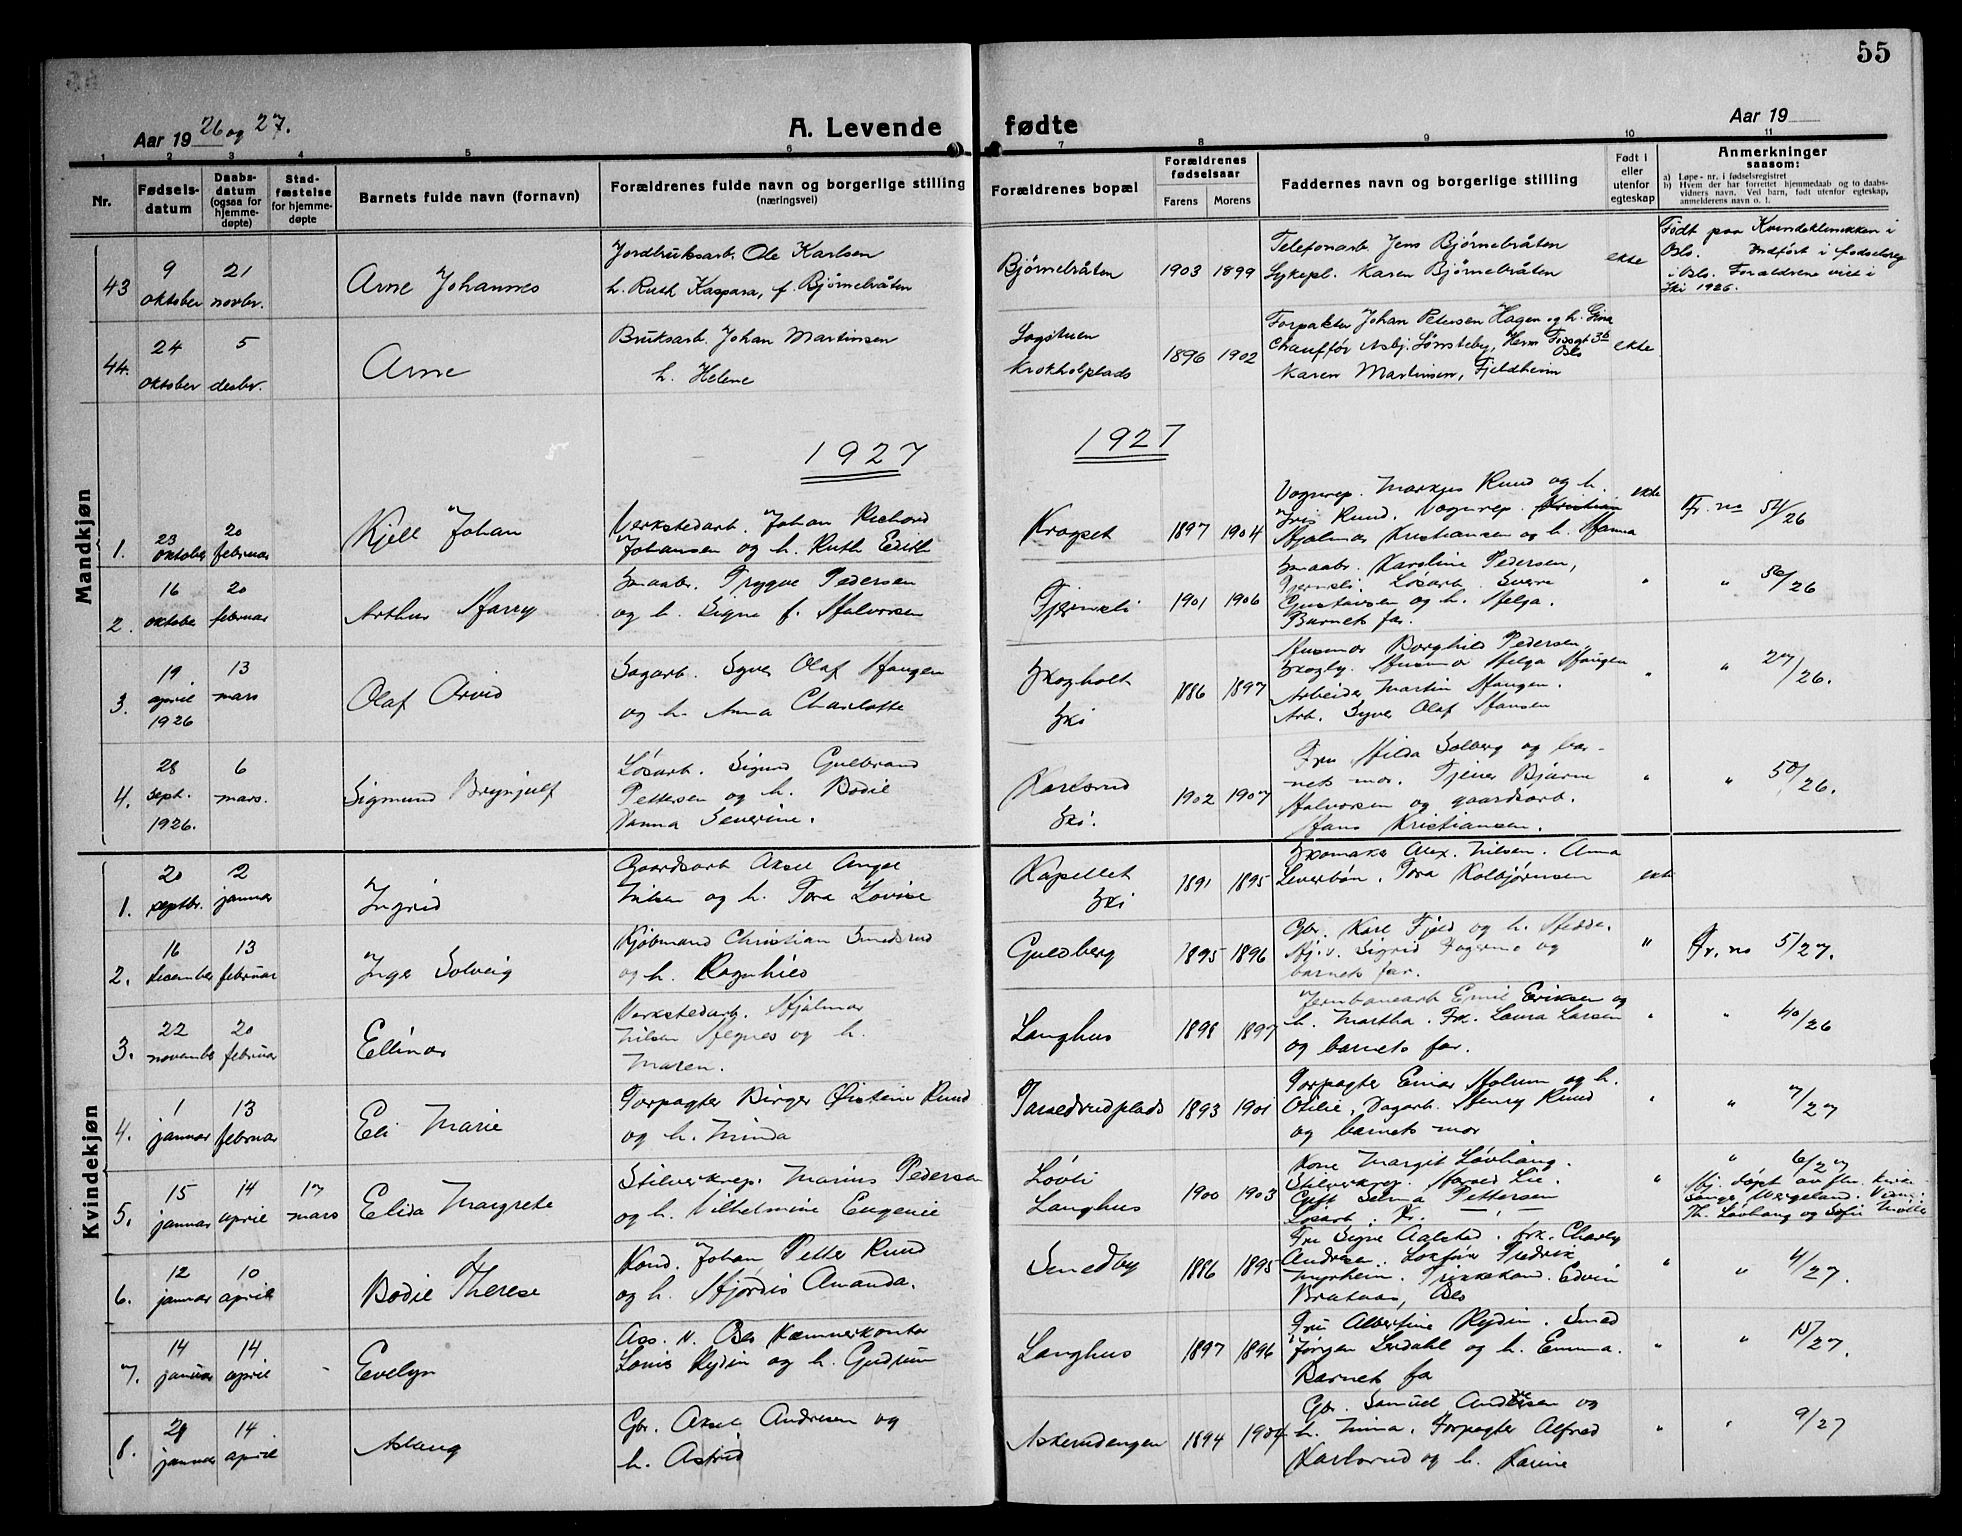 55
Aar 19 26 og 27.
A. Levende fødte
Aar 19
1 2 3 4 5 6 7 8 9 10 11
Nr.
Fødsels-
datum
Daabs-
datum
(ogsaa for
hjemme-
døpte)
Stad-
fæstelse
for hjemme-
døpte
Barnets fulde navn (fornavn)
Forældrenes fulde navn og borgerlige stilling
(næringsvei)
Forældrenes bopæl
Forældrenes
fødselsaar
Farens Morens
Faddernes navn og borgerlige stilling
Født i
eller
utenfor
egteskap
Anmerkninger
saasom:
a) Løpe-nr. i fødselsregistret
b) Hvem der har forrettet hjemmedaab og to daabs-
vidners navn. Ved barn, født utenfor egteskap,
anmelderens navn o. l.
Mandkjøn
43
9
oktober
21
novbr.
Arne Johannes
Jordbruksarb. Ole Karlsen
h. Ruth Kaspara, f. Bjørnebråten
Bjørnebråten
1903 1899
Telefonarb. Jens Bjørnebråten
Sykepl. Karen Bjørnebråten
ekte
Født paa Kvindeklinikken i
Oslo. Indført i fødselsreg
i Oslo. Forældrene viet i
Ski 1926.
44.
24
oktober
5
desbr.
Arne
Bruksarb. Johan Martinsen
h. Helene
Sagstuen
Krokholplads
1896 1902
Forpakter Johan Petersen Hagen og h. Gina
Chauffør Asbj. Sønsteby, Herm Fossgt 3b
Oslo
Karen Martinsen, Fjeldheim
ekte
1927
1927
1.
23
oktober
20
februar
Kjell Johan
Verkstedarb. Johan Richard
Johansen og h. Ruth Edith
Kragset
1897 1904
Vognrep. Markus Ruud og h.
Iris Ruud. Vognrep. Kristian
Hjalmar Kristiansen og h. Hanna
ekte
Fr. no 51/26
2.
16
oktobe
20
februar
Arthur Harry
Smaabr. Trygve Pedersen
og h. Signe f. Halvorsen
Tjernsli
1901 1906
Smaabr. Karoline Pedersen,
Tjernsli Løsarb. Sverre
Gustavsen og h. Helga.
Barnets far.
"
" 56/26
3.
19
april
1926
13
mars
Olaf Arvid
Sagarb. Syver Olaf Haugen
og h. Anna Charlotte
Skogholt
Ski
1886 1897
Husmor Borghild Pedersen,
Skogly. Husmor Helga Haugen
Arbeider Martin Haugen.
Arb. Syver Olaf Hansen
"
" 27/26.
4.
28
sept.
1926.
6
mars.
Sigmund Brynjulf
Løsarb. Sigurd Gulbrand
Pettersen og h. Bodil
Nanna Severine.
Karlsrud
Ski.
1902 1907
Fru Hilda Solberg og bar-
nets mor. Tjener Bjarne
Halvorsen og gaardsarb.
Hans Kristiansen.
"
" 50/26.
Kvindekjøn
1.
20
septbr.
2
januar
Ingrid
Gaardsarb Aksel Angel
Nilsen og h. Tora Lovise
Kapellet
Ski
1891 1895
Skomaker Alex. Nilsen. Anna
Leverbøn. Tora Kolbjørnsen
ekte
2.
16
desember
13
februar
Inger Solveig
Kjøbmand Christian Smedsrud
og h. Ragnhild
Guldberg
1895 1896
Gbr. Karl Fjeld og h. Hedda.
Hj.v. Sigrid Fagermo og
barnets far.
"
Fr. no 5/27.
3.
22
november
20
februar
Ellinor
Verkstedarb. Hjalmar
Nilsen Hegnes og h.
Maren.
Langhus
1898 1897
Jernbanearb Emil Eriksen og
h. Martha. Frk. Laura Larsen
og barnets far.
"
" 40/26
4.
1
januar
13
februar
Eli Marie
Forpagter Birger Øistein Ruud
og h. Minda
Tarsedrudplads
1893 1901
Forpagter Einar Holum og h.
Otilie, Dagarb. Henry Ruud
og barnets mor
"
" 7/27
5.
15
januar
14
april
17
mars
Elida Margrete
Stilverksrep. Marius Pedersen
og h. Vilhelmine Eugenie
Løvli
Langhus
1900 1903
Kone Margit Løvhaug.
Stilverksrep. Harald Lie.
Gift Selma Pettersen
Løsarb.
"
" 6/27
Hj. døpt av
Th. Løvhaug og Sofie
6.
12
januar
10
april
Bodil Therese
Kond. Johan Petter Ruud
og h. Hjørdis Amanda.
Smedby
1886 1895
Fru Signe Aalstad. frk. Charly
Andresen. Lokfører Fredrik
Myrheim. Trikkekond. Edvin
Brataas, Oslo
"
" 4/27.
7.
14
januar
14
april
Evelyn
Ass. v. Oslo Kæmnerkontor
Louis Rydin og h. Gudrun
Langhus
1897 1896
Fru Albertine Rydin. Smed
Jørgen Lerdahl og h. Emma.
Barnets fa
"
" 15/27.
8.
29
januar
14
april
Aslaug
Gbr. Aksel Andresen og
h. Astrid
Askerudengen
1894 1904
Gbr. Samuel Andresen og
h. Minna. Forpagter Alfred
Karlsrud og h. Karine
"
" 9/27